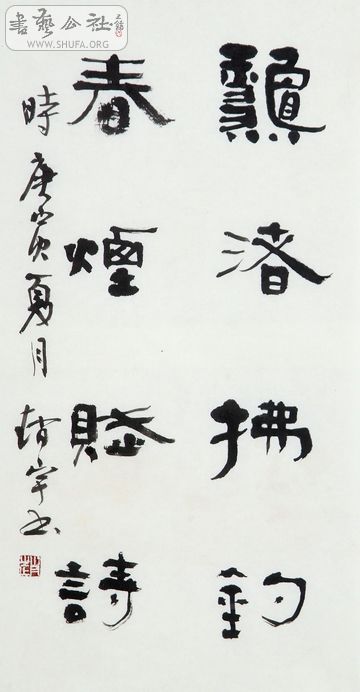 書藝公社
WWW.SHUFA.ORG
渚拂釣
春煙賦詩
時庚寅夏月 宇书